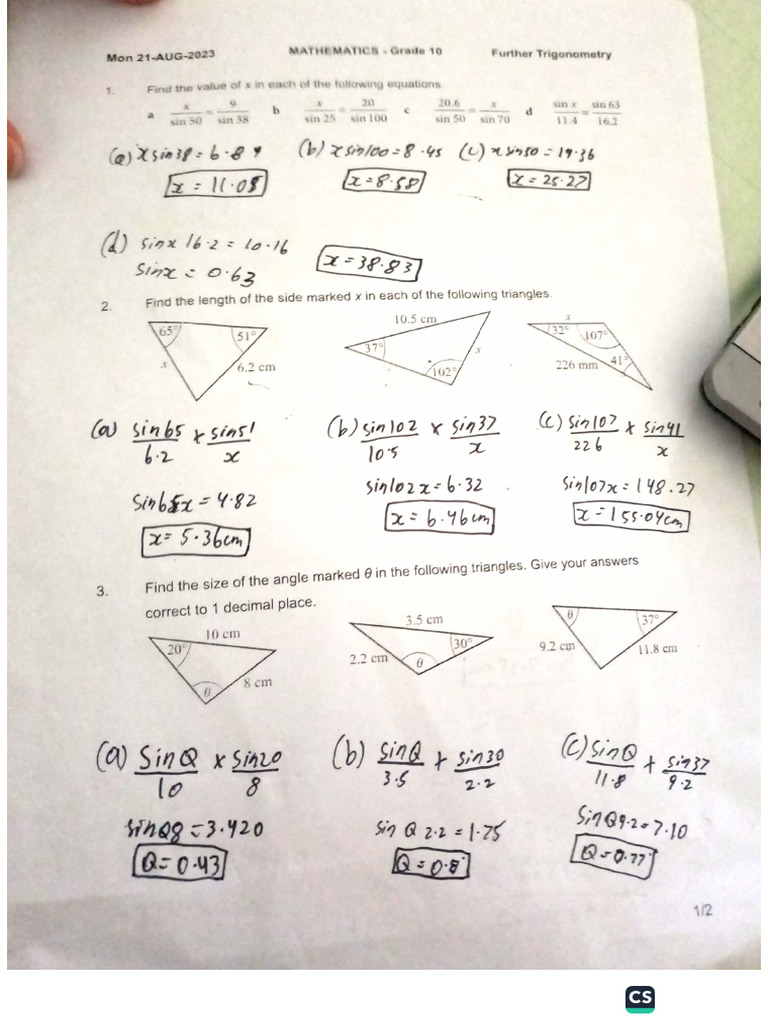 Mon 21-AUG-2023 MATHEMATICS - Grade 10 Further Trigonometry
1. Find the value of x in each of the following equations.
a x/sin 50 = 9/sin 38 b x/sin 25 = 20/sin 100 c 20.6/sin 50 = x/sin 70 d sin x/11.4 = sin 63/16.2
(a) x sin38 = 6.89 (b) x sin100 = 8.45 (c) x sin50 = 19.36
x = 11.05 x = 8.58 x = 25.27
(d) sinx 16.2 = 10.16 x = 38.83
sinx = 0.63
2. Find the length of the side marked x in each of the following triangles.
65° 51° x 6.2 cm
10.5 cm 37° x 102°
x 32° 107° 226 mm 41°
(a) sin65/6.2 x sin51/x (b) sin102/10.5 x sin37/x (c) sin107/226 x sin41/x
sin65x = 4.82 sin102x = 6.32 sin107x = 148.27
x = 5.36cm x = 6.46cm x = 155.04cm
3. Find the size of the angle marked θ in the following triangles. Give your answers
correct to 1 decimal place.
10 cm 20° θ 8 cm
3.5 cm 30° 2.2 cm θ
θ 37° 9.2 cm 11.8 cm
(a) SinQ/10 x Sin20/8 (b) SinQ/3.5 x Sin30/2.2 (C) SinQ/11.8 x Sin37/9.2
sinQ8 = 3.420 sin Q 2.2 = 1.75 SinQ9.2 = 7.10
Q = 0.43 Q = 0.8 Q = 0.77
1/2
CS